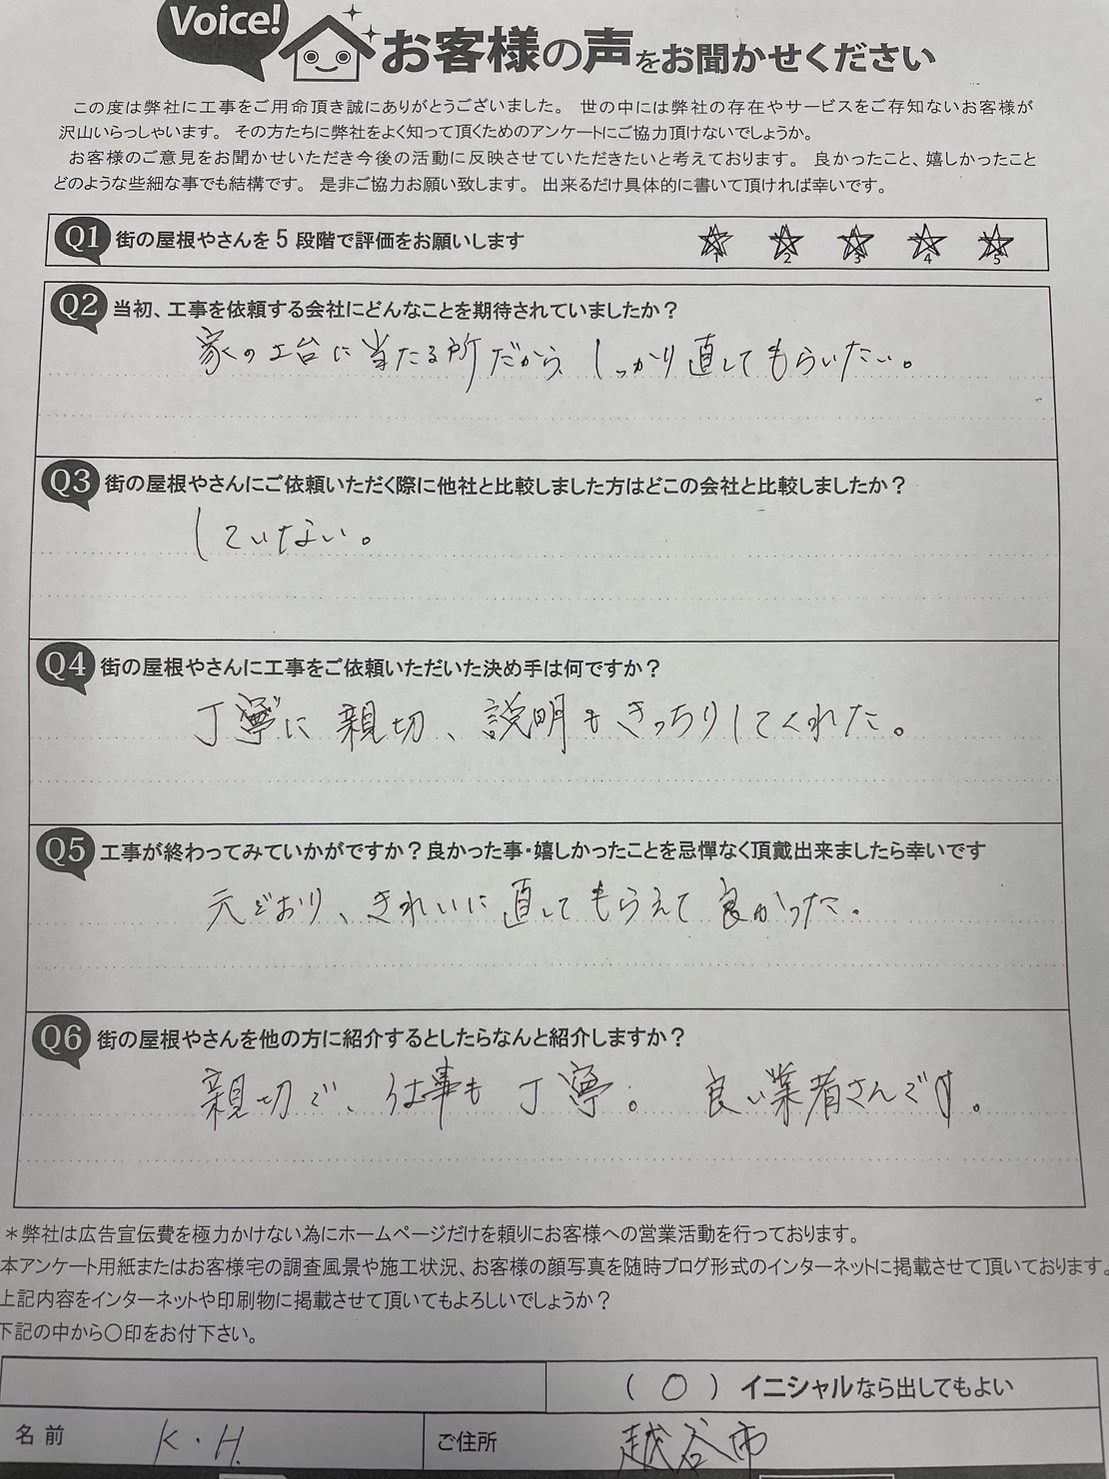 Voice!
お客様の声をお聞かせください
この度は弊社に工事をご用命頂き誠にありがとうございました。 世の中には弊社の存在やサービスをご存知ないお客様が
沢山いらっしゃいます。 その方たちに弊社をよく知って頂くためのアンケートにご協力頂けないでしょうか。
お客様のご意見をお聞かせいただき今後の活動に反映させていただきたいと考えております。 良かったこと、嬉しかったこと
どのような些細な事でも結構です。 是非ご協力お願い致します。 出来るだけ具体的に書いて頂ければ幸いです。
Q1 街の屋根やさんを5段階で評価をお願いします 1 2 3 4 5
Q2 当初、工事を依頼する会社にどんなことを期待されていましたか？
家の土台に当たる所だから、しっかり直してもらいたい。
Q3 街の屋根やさんにご依頼いただく際に他社と比較しました方はどこの会社と比較しましたか？
していない。
Q4 街の屋根やさんに工事をご依頼いただいた決め手は何ですか？
丁寧に親切、説明もきっちりしてくれた。
Q5 工事が終わってみていかがですか？良かった事・嬉しかったことを忌憚なく頂戴出来ましたら幸いです
元どおり、きれいに直してもらえて良かった。
Q6 街の屋根やさんを他の方に紹介するとしたらなんと紹介しますか？
親切で、仕事も丁寧。 良い業者さんです。
＊弊社は広告宣伝費を極力かけない為にホームページだけを頼りにお客様への営業活動を行っております。
本アンケート用紙またはお客様宅の調査風景や施工状況、お客様の顔写真を随時ブログ形式のインターネットに掲載させて頂いております。
上記内容をインターネットや印刷物に掲載させて頂いてもよろしいでしょうか？
下記の中から〇印をお付下さい。
（ 〇 ）イニシャルなら出してもよい
名前 K.H. ご住所 越谷市